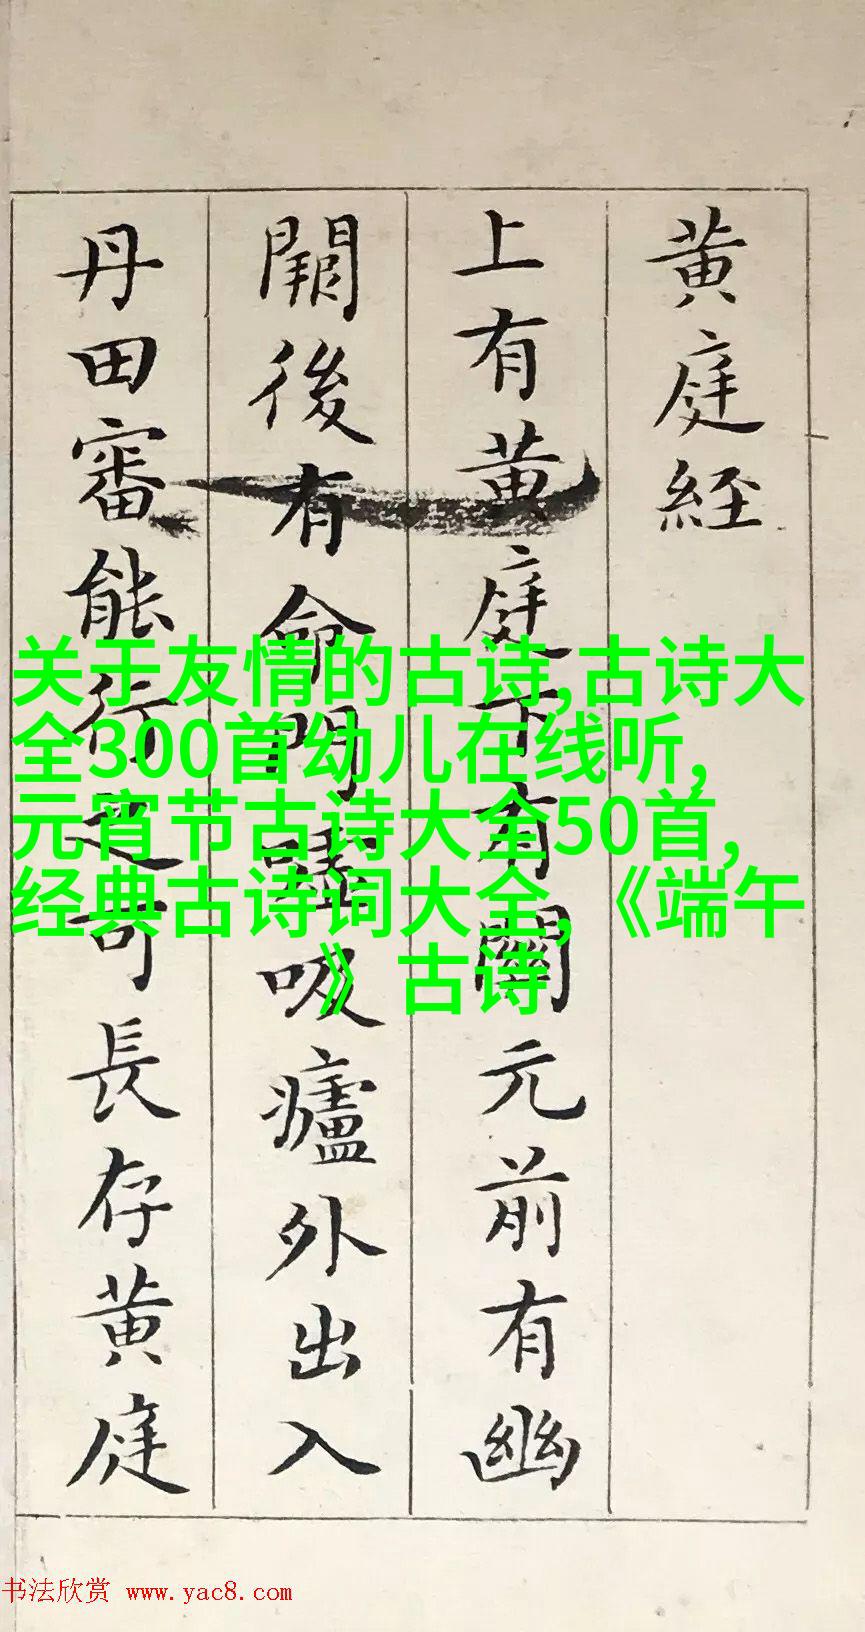 黄庭經
上有黄庭下有關元前有幽
闕後有命門噓吸廬外出入
丹田審能行之可長存黄庭
关于友情的古诗,古诗大
全300首幼儿在线听,
元宵节古诗大全50首,
经典古诗词大全,《端午
》 古诗
书法欣赏 www.yac8.com